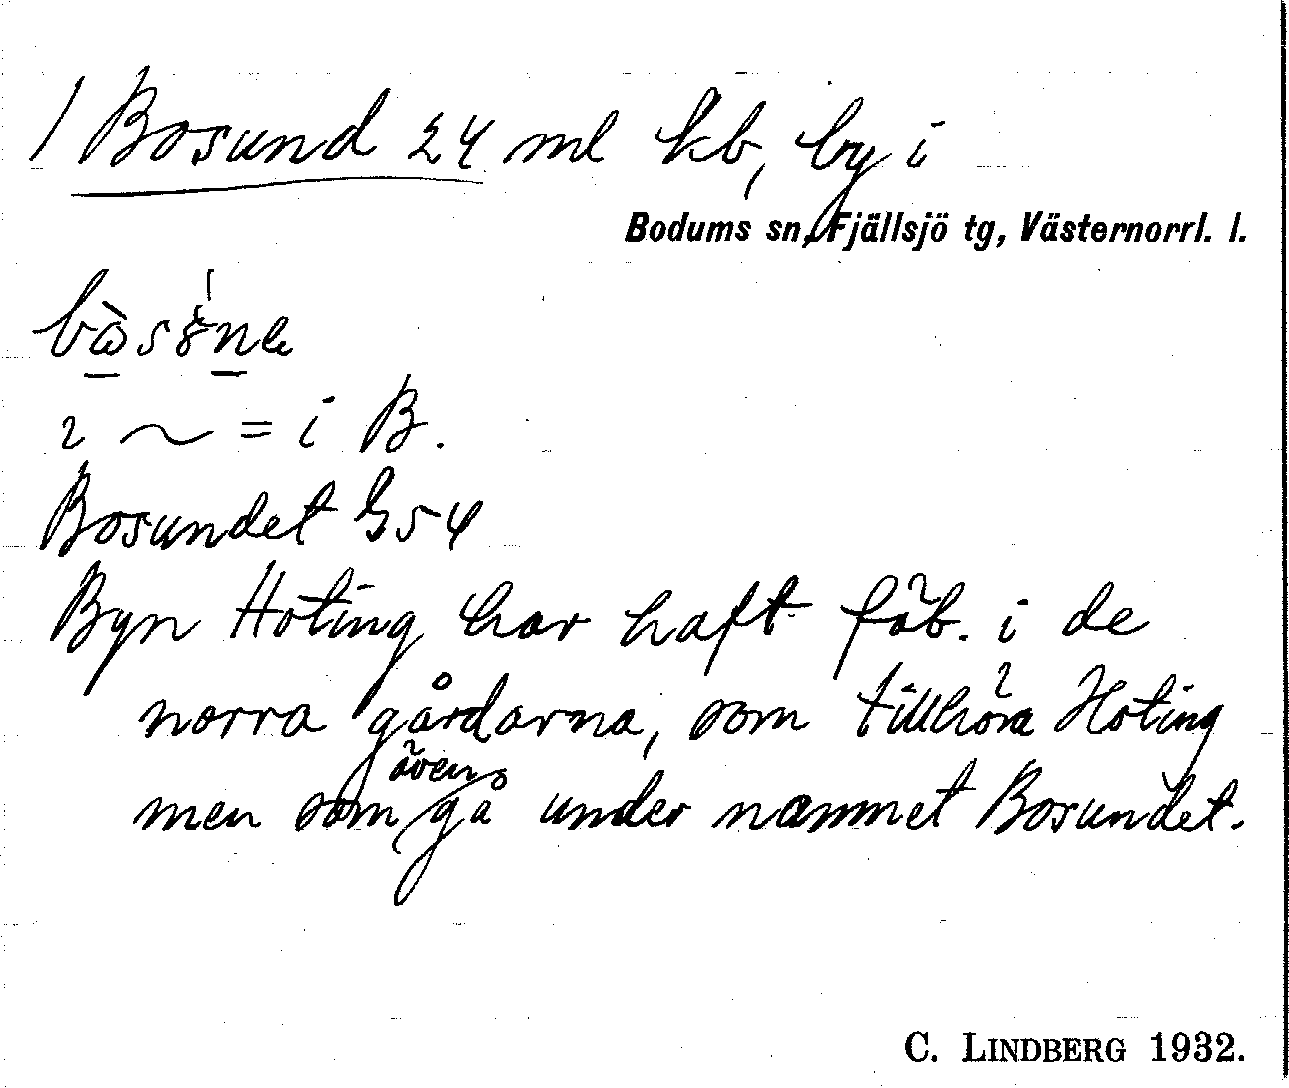 1 Bosund 24 ml kb, by i
Bodums sn, Fjällsjö tg, Västernorrl. l.
ı ~ = i B.
Bosundet G54
Byn Hoting har haft fäb. i de
norra gårdarna, som tillhöra Hoting
men som även gå under namnet Bosundet.
C. LINDBERG 1932.